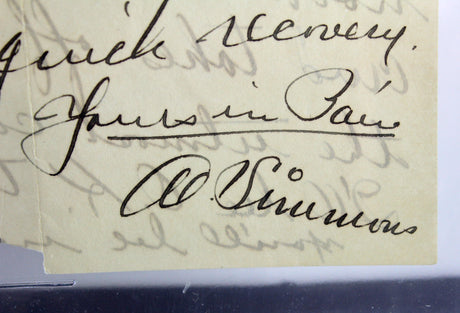 quick recovery.
Yours in Pain
Al. Simmons